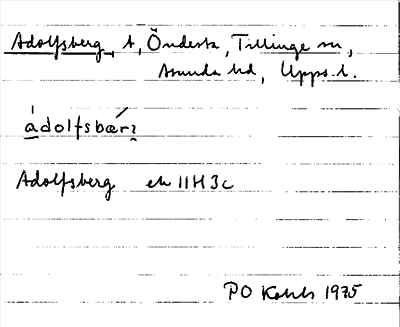 Adolfsberg, t, Öndesta, Tillinge sn,
Asunda hd, Upps. l.
ádolfsbærɩ
Adolfsberg ek 11H3c
PO 1975